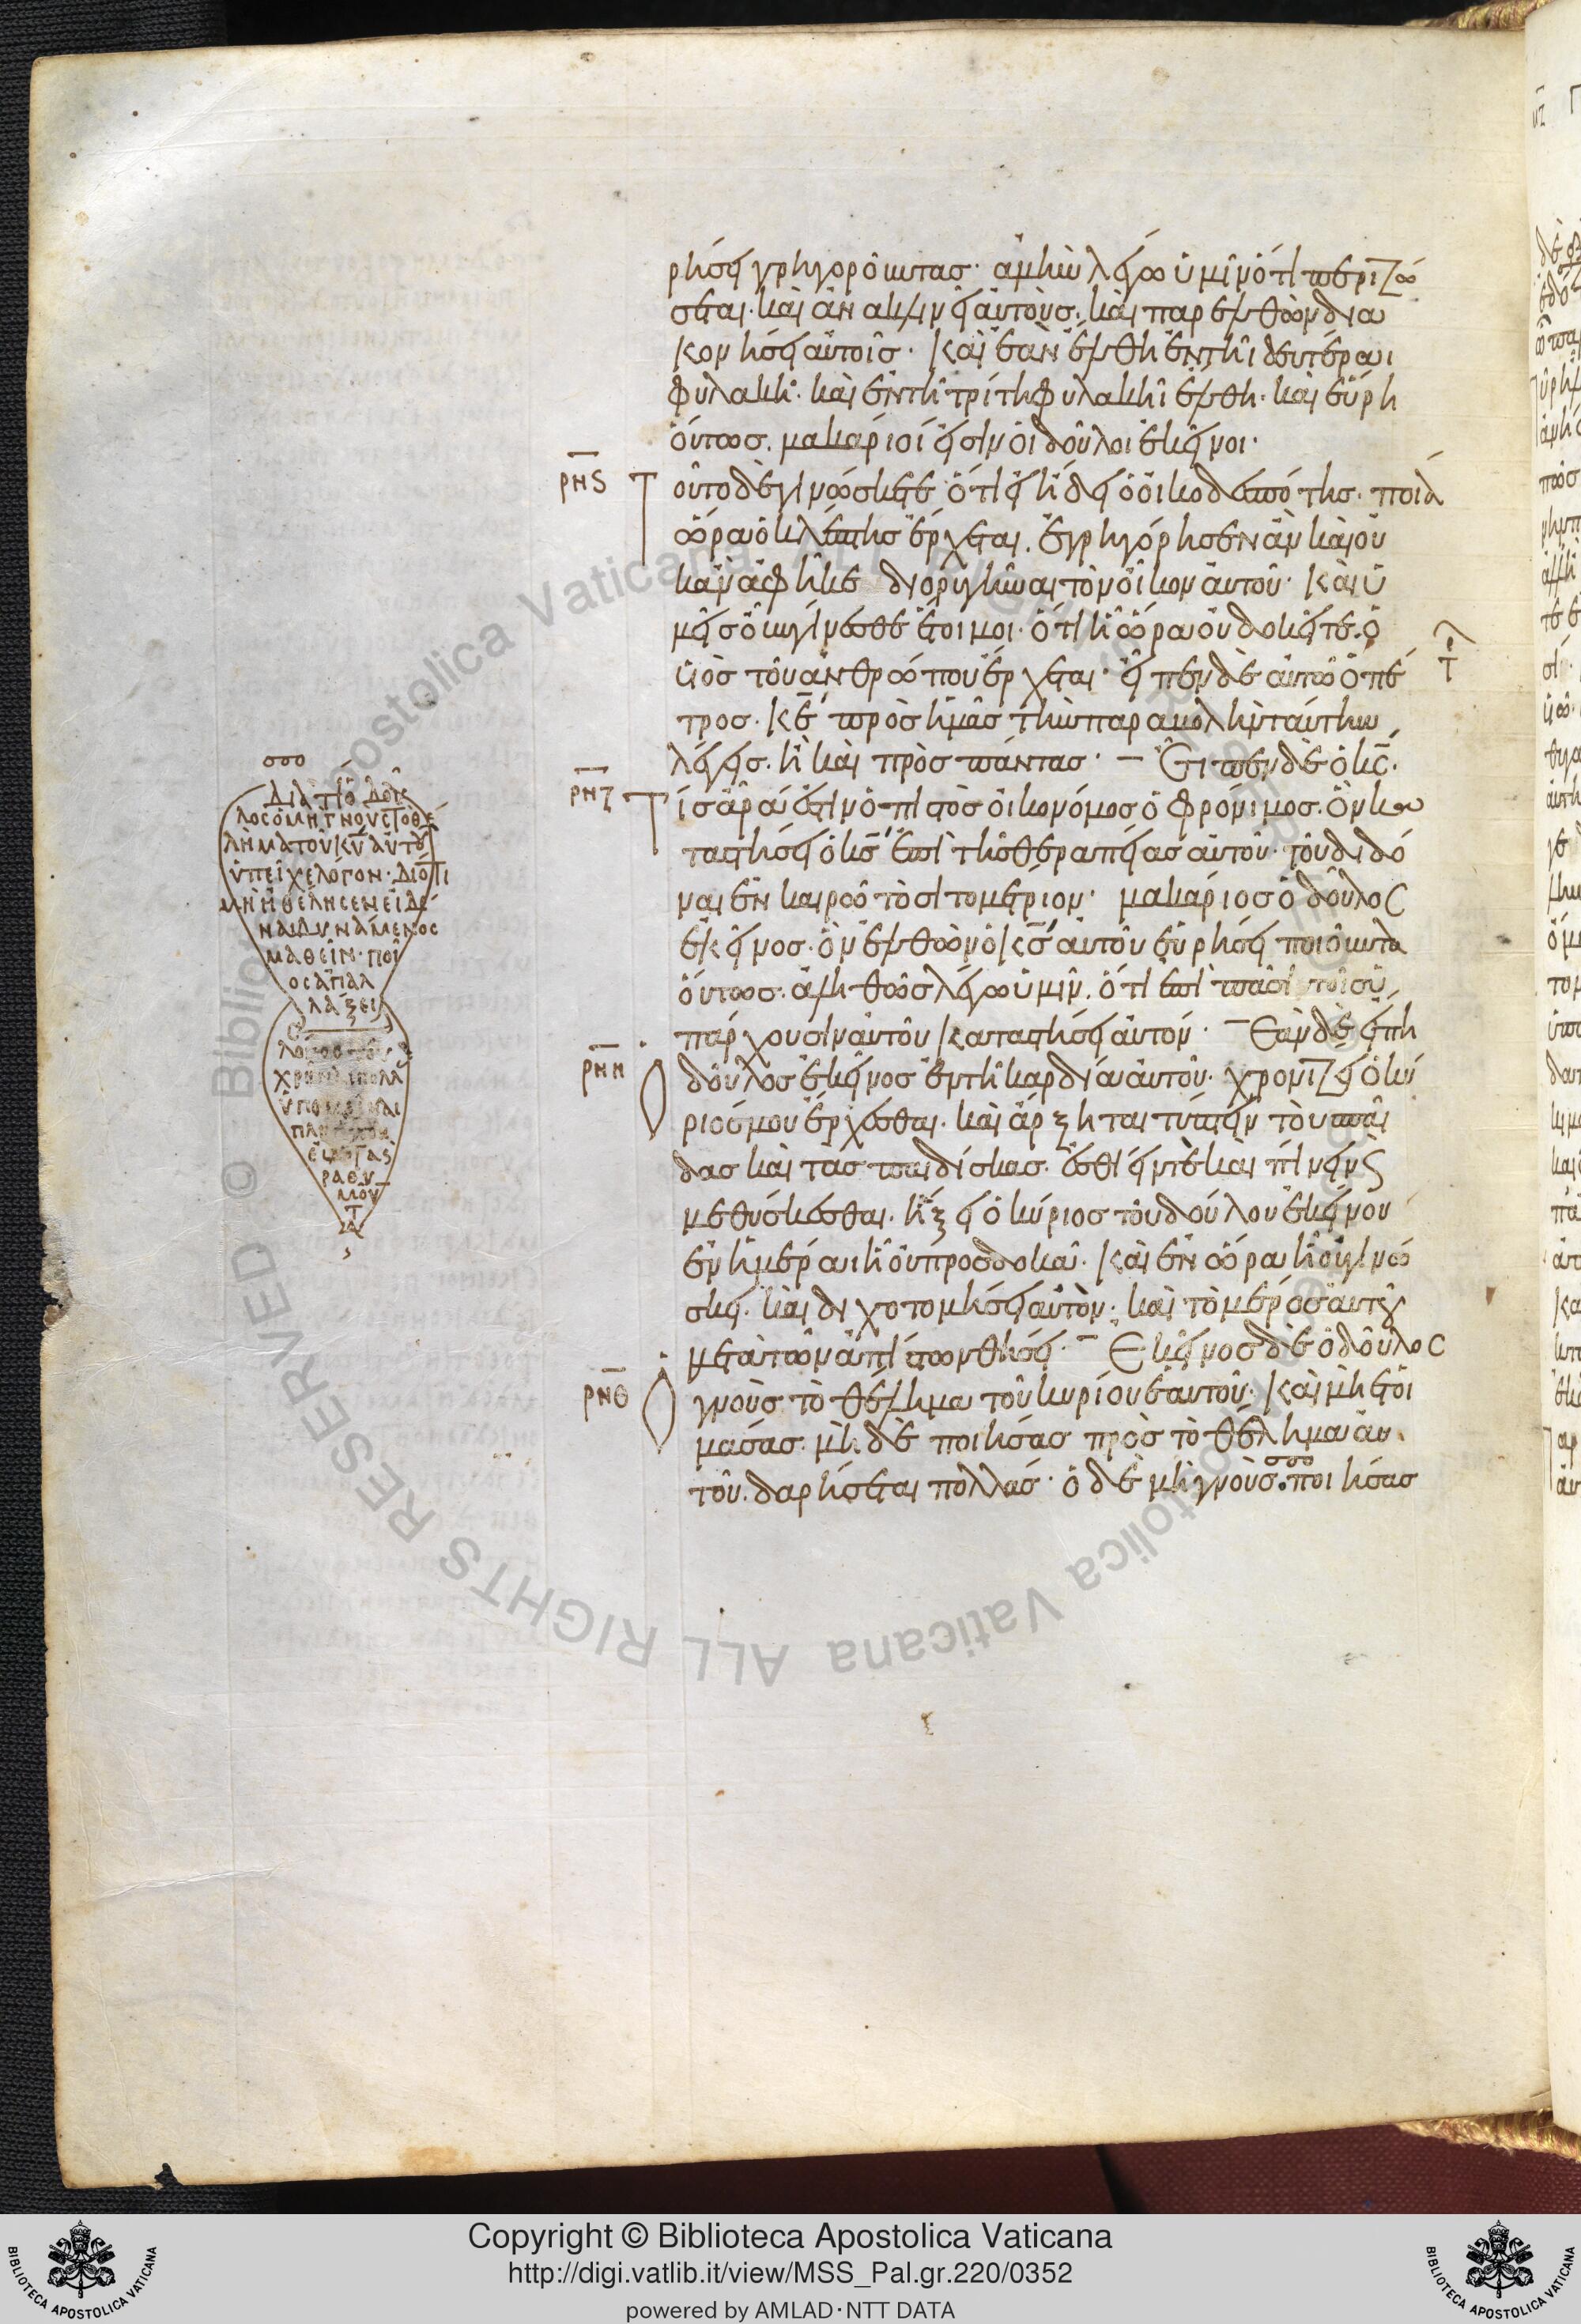 ρήσει γρηγοροῦντας· ἀμὴν λέγω ὑμῖν ὅτι περιζώ
σεται· καὶ ἀνακλινεῖ αὐτούς· καὶ παρελθὼν δια
κονήσει αὐτοῖς· καὶ ἐὰν ἔλθη ἐν τῆι δευτέραι
φυλακῆ· καὶ ἐν τῆ τρίτη φυλακῆι ἔλθη· καὶ εὕρη
οὕτως· μακάριοί εἰσιν οἱ δοῦλοι ἐκεῖνοι·
ρνς Τοῦτο δὲ γινώσκετε ὅτι εἰ ἤδει ὁ οἰκοδεσπότης· ποία
ὥρα ὁ κλέπτης ἔρχεται· ἐγρηγόρησεν ἂν καὶ οὐ
κ ἂν ἀφῆκε διορυγῆναι τὸν οἶκον αὐτοῦ· καὶ ὑ
μεῖς οὖν γίνεσθε ἕτοιμοι· ὅτι ἧ ὥρα οὐ δοκεῖτε· ὁ
υἱὸς τοῦ ἀνθρώπου ἔρχεται· εἶπεν δὲ αὐτῶ ὁ πέ
τρος· κε πρὸς ἡμᾶς τὴν παραβολὴν ταύτην
λέγεις· ἢ καὶ πρὸς πάντας· Εἶπεν δὲ ὁ κς·
ρνζ Τίς ἄρα ἐστὶν ὁ πιστὸς οἰκονόμος ὁ φρόνιμος· ὃν κα
ταστήσει ὁ κς ἐπὶ τῆς θεραπείας αὐτοῦ· τοῦ διδό
ναι ἐν καιρῶ τὸ σιτομέτριον· μακάριος ὁ δοῦλος
ἐκεῖνος· ὃν ἐλθὼν ὁ κς αὐτοῦ εὑρήσει ποιοῦντα
οὕτως· ἀληθῶς λέγω ὑμῖν· ὅτι ἐπὶ πᾶσι τοῖς ὑ
πάρχουσιν αὐτοῦ καταστήσει αὐτόν· Ἐὰν δὲ εἴπη
ρνη ὁ δοῦλος ἐκεῖνος ἐν τῆ καρδία αὐτοῦ· χρονίζει ὁ κύ
ριός μου ἔρχεσθαι· καὶ ἄρξηται τύπτειν τοὺς παῖ
δας καὶ τὰς παιδίσκας· ἐσθίειν τὲ καὶ πίνειν ϗ
μεθύσκεσθαι· ἥξει ὁ κύριος τοῦ δούλου ἐκείνου
ἐν ἡμέραι ἧ οὐ προσδοκᾶ· καὶ ἐν ὥρα ἧ οὐ γινώ
σκει· καὶ διχοτομήσει αὐτὸν· καὶ τὸ μέρος αὐτοῦ
μετὰ τῶν ἀπίστων θήσει· Ἐκεῖνος δὲ ὁ δοῦλος
ρνθ ὁ γνοὺς τὸ θέλημα τοῦ κυρίου ἑαυτοῦ· καὶ μὴ ἑτοι
μάσας· μὴ δὲ ποιήσας πρὸς τὸ θέλημα αὐ
τοῦ· δαρήσεται πολλάς· ὁ δὲ μὴ γνοὺς· ποιήσας
Διὰ τί ὁ δοῦ
λος ὁ μὴ γνοὺς τὸ θέ
λημα τοῦ κυ αὐτοῦ
ὑπεῖχε λόγον· διότι
μὴ ἠθέλησεν εἰδέ
ναι δυνάμενος
μαθεῖν· ποῖ
ος ἀπαλ
λάξει